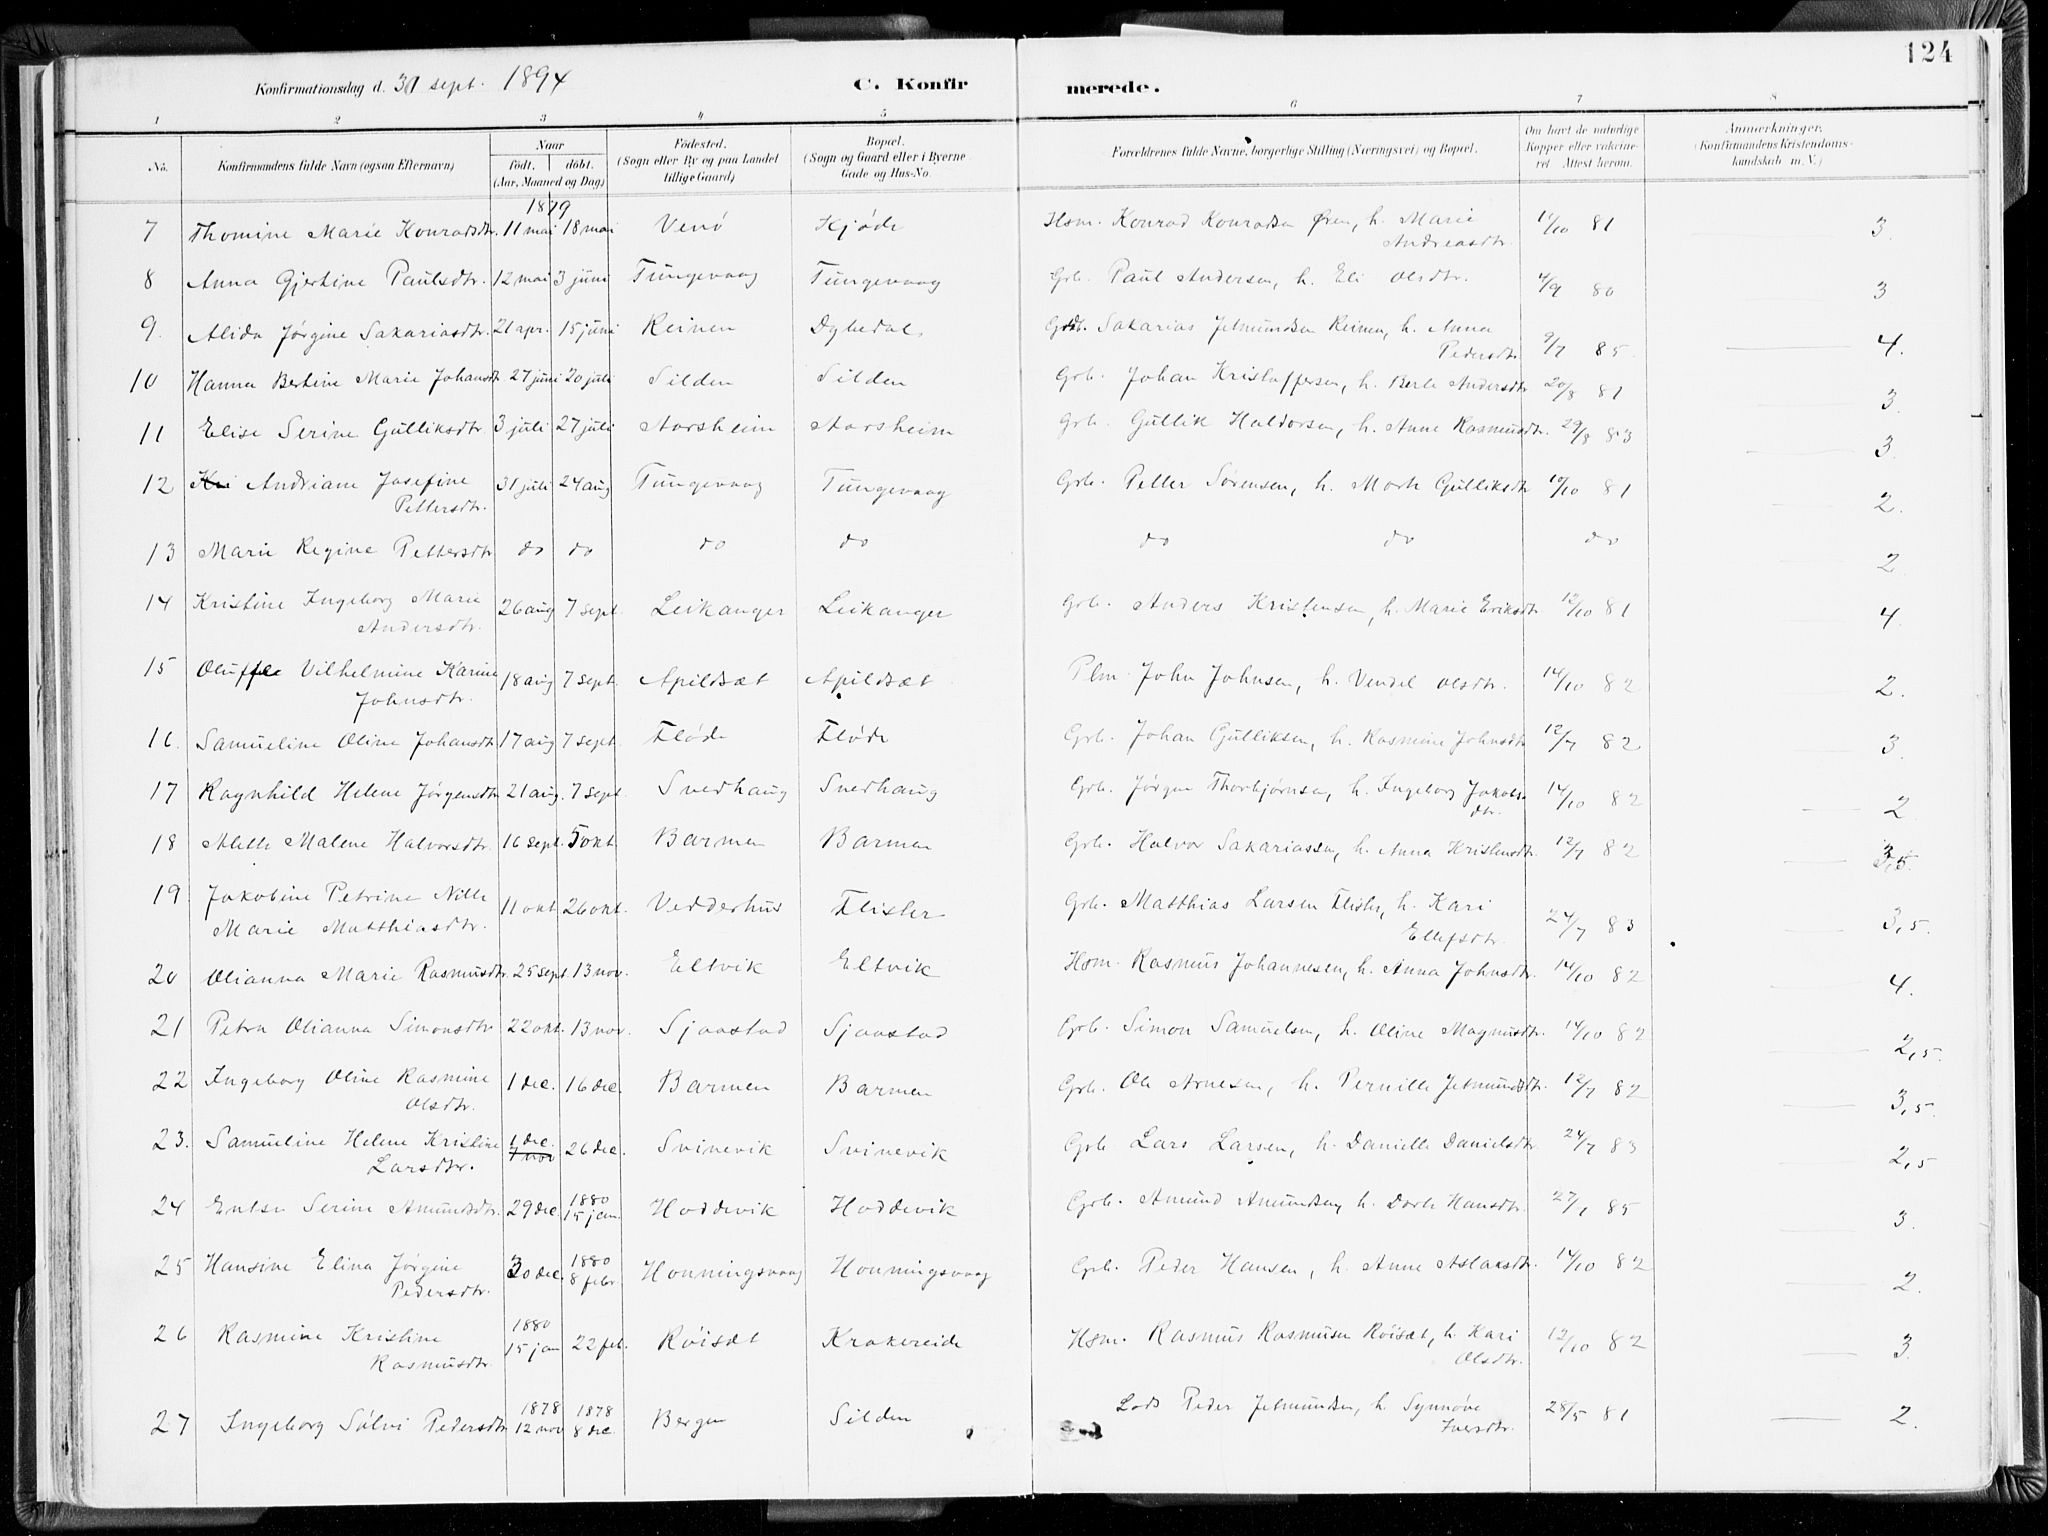 124
Konfirmationsdag d. 30 sept. 1894 C. Konfirmerede.
1 2 3 4 5 6 7 8
No. Konfirmandens fulde Navn (ogsaa Efternavn) Naar født. døbt. (Aar, Maaned og Dag) Fødested. (Sogn eller By og paa Landet tillige Gaard) Bopæl. (Sogn og Gaard eller i Byerne Gade og Hus-No. Forældrenes fulde Navne, borgerlige Stilling (Næringsvei) og Bopæl. Om havt de naturlige Kopper eller vaccineret. Attest herom. Anmerkninger. (Konfirmandens Kristendomskundskab m. V.)
1879
7 Thomine Marie Konradsdtr. 11 mai 18 mai Venø Kjøde Hsm. Konrad Konradsen Øren, h. Marie Andreasdtr. 11/10 81 3.
8 Anna Gjertine Paulsdtr. 12 mai 3 juni Tungevaag Tungevaag Grb. Paul Andersen, h. Eli Olsdtr. 4/9 80 3
9. Alida Jørgine Sakariasdtr. 21 apr. 15 juni Reinen Dybedal Sakarias Jetmundsen Reinen, h. Anna Pedersdtr. 9/7 85. 4.
10 Hanna Bertine Marie Johansdtr 27 juni 20 juli Silden Silden Grb. Johan Kristoffersen, h. Berte Andersdtr 20/8 81 3.
11 Elise Serine Gulliksdtr 3 juli 27 juli Aarsheim Aarsheim Grb. Gullik Haldorsen, h. Anne Rasmusdtr. 29/8 83 3.
12 Andriane Josefine Pettersdtr. 31 juli 24 aug Tungevaag Tungevaag Grb. Petter Sørensen, h. Marte Gulliksdtr 12/10 81 2.
13 Marie Regine Pettersdtr do do do do do do do 2.
14 Kristine Ingeborg Marie Andersdtr. 26 aug 7 sept. Leikanger Leikanger Grb. Anders Kristensen, h. Marie Eriksdtr 12/10 81 4.
15 Oluffe Vilhelmine Karine Johnsdtr. 18 aug 7 sept. Apildsæt Apildsæt Plm. John Johnsen, h. Vendel Olsdtr. 14/10 82 2.
16. Samueline Oline Johansdtr 17 aug 7 sept. Fløde Fløde Grb. Johan Gulliksen, h. Rasmine Johnsdtr 12/7 82 3.
17 Ragnhild Helene Jørgensdtr 21 aug. 7 sept. Snedhaug Snedhaug Grb. Jørgen Thorbjørnsen, h. Ingeborg Jakobsdtr. 14/10 82 2.
18 Mette Malene Halvorsdtr. 16 sept. 5 okt Barmen Barmen Grb. Halvor Sakariassen, h. Anna Kristensdtr. 12/7 82 3,5.
19 Jakobine Petrine Nille Marie Matthiasdtr. 11 okt 26 okt. Vedderhus Flister Grb. Matthias Larsen Flister, h. Kari Ellefsdtr. 24/7 83 3,5.
20 Olianna Marie Rasmusdtr. 25 sept. 13 nov. Eltvik Eltvik Hsm. Rasmus Johannesen, h. Anna Johnsdtr. 14/10 82 4.
21 Petra Olianna Simonsdtr 22 okt. 13 nov. Sjaastad Sjaastad Grb. Simon Samuelsen, h. Oline Magnusdtr. 14/10 82 2,5.
22 Ingeborg Oline Rasmine Olsdtr. 1 dec. 16 dec. Barmen Barmen Grb. Ole Arnesen, h. Pernille Jetmundsdtr. 12/7 82 3,5.
23. Samueline Helene Kristine Larsdtr. 1 dec. 7 nov 26 dec. Svinevik Svinevik Grb Lars Larsen, h. Danielle Danielsdtr. 24/7 83 2,5
24 Entse Serine Amundsdtr. 29 dec. 1880 15 jan. Hoddevik Hoddevik Grb. Amund Amundsen, h. Dorte Hansdtr. 27/1 85 3.
25 Hansine Elina Jørgine Pedersdtr. 30 dec. 1880 8 febr. Honningsvaag Honningsvaag Grb. Peder Hansen, h. Anne Aslaksdtr. 14/10 82 2.
26 Rasmine Kristine Rasmusdtr. 1880 15 jan 22 feb. Røisæt Krakereide Hsm. Rasmus Rasmusen Røisæt, h. Kari Olsdtr. 12/10 82 3.
27 Ingeborg Sølvi Pedersdtr 1878 12 nov 1878 8 dec. Bergen Silden Lods Peder Jetmundsen, h. Synnøve Iversdtr. 28/5 81 2.